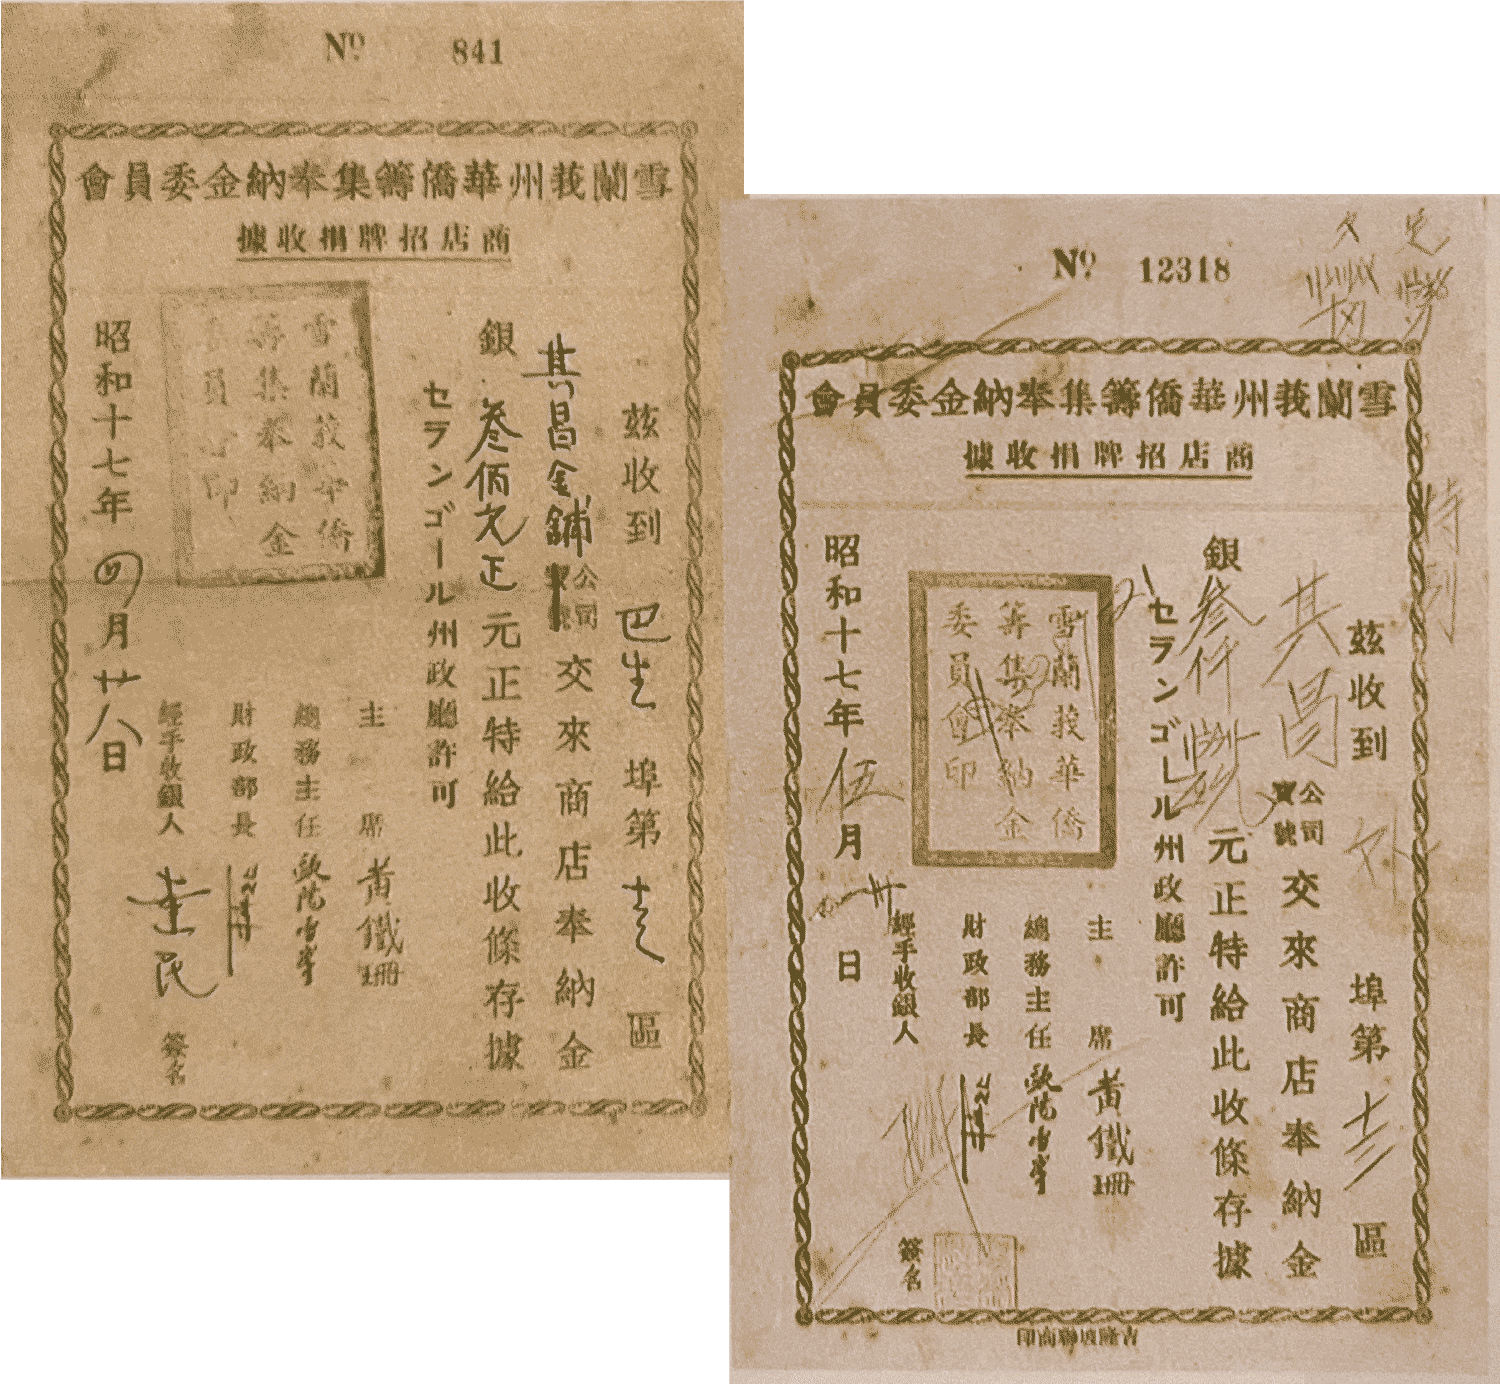 Nº 841
雪蘭莪州華僑籌集奉納金委員會
商店招牌捐收據
茲收到 巴生 埠第 區
其昌金鋪 公司 寶號 交來商店奉納金
銀 叁佰元正 元正特給此收條存據
セランゴール州政廳許可
主席 黃鐵珊
總務主任
財政部長
經手收銀人 簽名
雪蘭莪華僑
籌集奉納金
委員會印
昭和十七年 四 月 廿八 日
Nº 12318
雪蘭莪州華僑籌集奉納金委員會
商店招牌捐收據
茲收到 埠第 十三 區
其昌 公司 寶號 交來商店奉納金
銀 叁仟 元正特給此收條存據
セランゴール州政廳許可
主席 黃鐵珊
總務主任
財政部長
經手收銀人 簽名
雪蘭莪華僑
籌集奉納金
委員會印
昭和十七年 伍 月 日